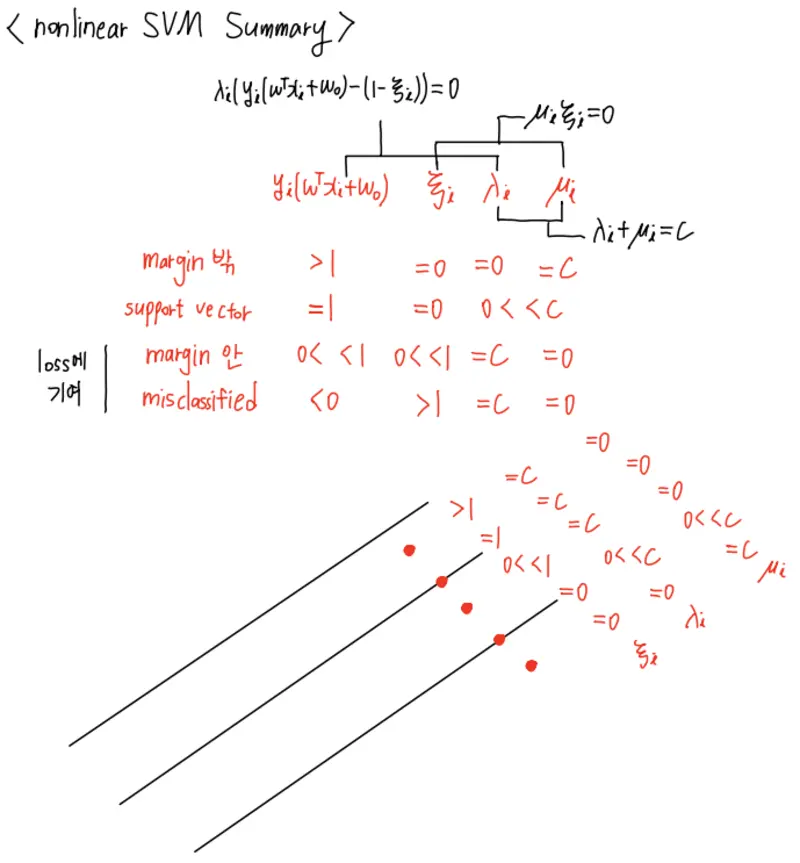 < nonlinear SVM Summary >
λᵢ(yᵢ(wᵀxᵢ+w₀)-(1-ξᵢ))=0
μᵢξᵢ=0
yᵢ(wᵀxᵢ+w₀) ξᵢ λᵢ μᵢ
λᵢ+μᵢ=C
margin 밖 >1 =0 =0 =C
support vector =1 =0 0< <C
loss에
기여
margin 안 0< <1 0<<1 =C =0
misclassified <0 >1 =C =0
=0
=0
=0
0<<C
=C
μᵢ
=C
=C
=C
0<<C
=0
λᵢ
>1
=1
0<<1
=0
=0
ξᵢ